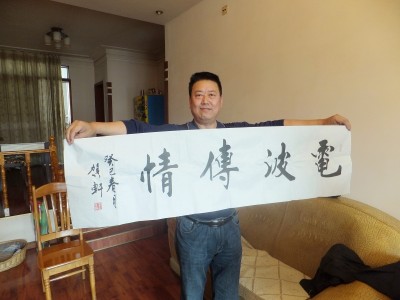 電波傳情
癸巳春月